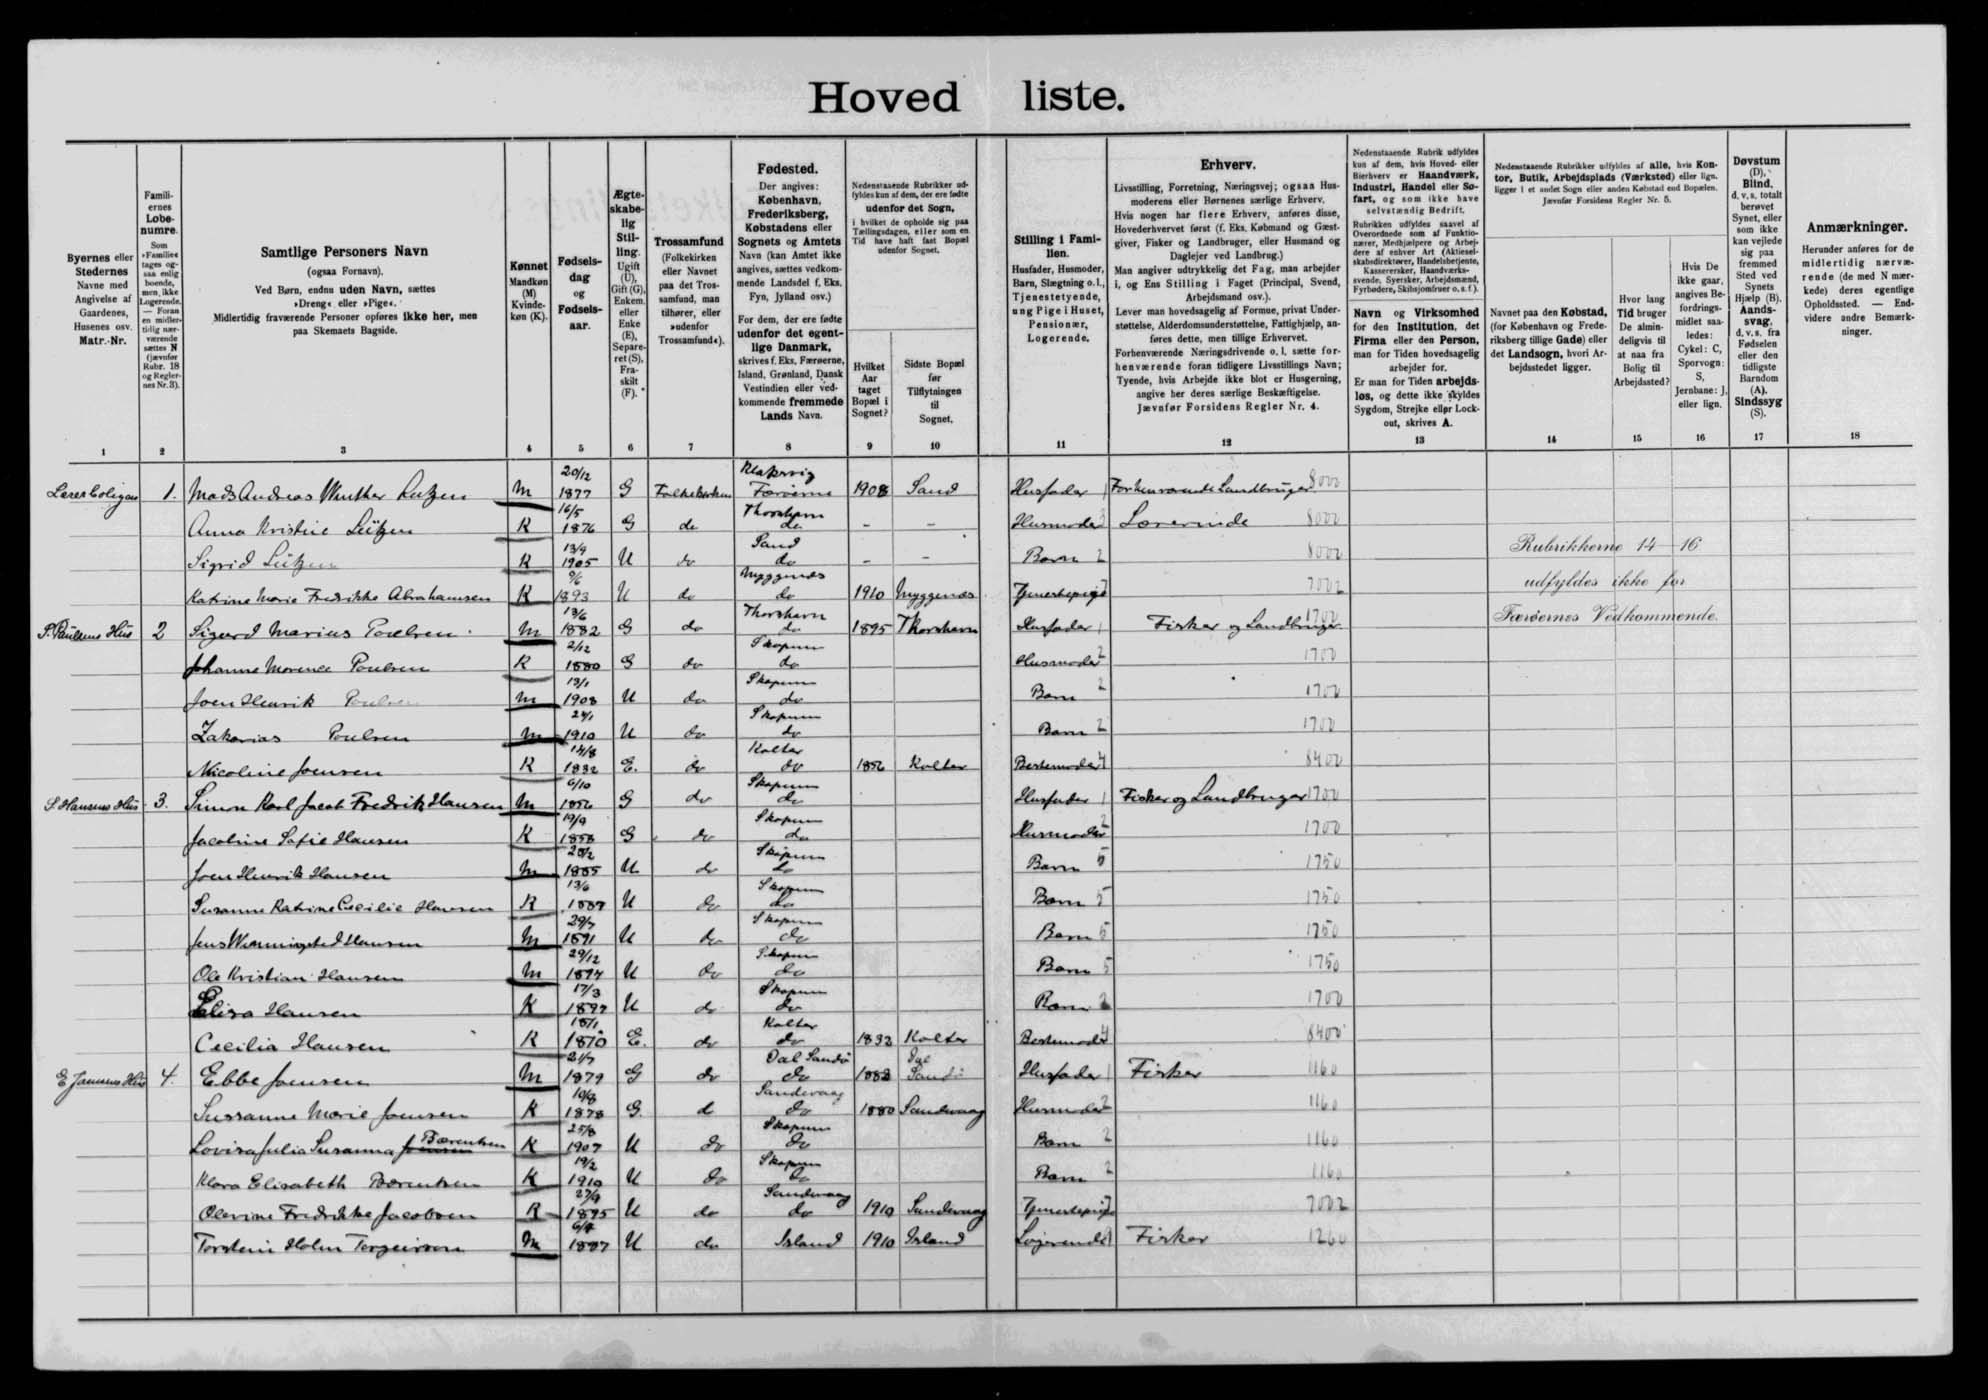 Hovedliste.
Byernes eller Stedernes Navne med Angivelse af Gaardenes, Husenes osv. Matr.-Nr.
Familiernes Løbenumre. Som »Familie« tages ogsaa enlig boende, men ikke Logerende. — Foran en midlertidig nærværende sættes N (jævnfør Rubr. 18 og Reglernes Nr. 3).
Samtlige Personers Navn (ogsaa Fornavn). Ved Børn, endnu uden Navn, sættes »Dreng« eller »Pige«. Midlertidig fraværende Personer opføres ikke her, men paa Skemaets Bagside.
Kønnet Mandkøn (M) Kvindekøn (K).
Fødselsdag og Fødselsaar.
Ægteskabelig Stilling. Ugift (U), Gift (G), Enkem. eller Enke (E), Separeret (S), Fraskilt (F).
Trossamfund (Folkekirken eller Navnet paa det Trossamfund, man tilhører, eller »udenfor Trossamfund«).
Fødested. Der angives: København, Frederiksberg, Købstadens eller Sognets og Amtets Navn (kan Amtet ikke angives, sættes vedkommende Landsdel f. Eks. Fyn, Jylland osv.) For dem, der ere fødte udenfor det egentlige Danmark, skrives f. Eks. Færøerne, Island, Grønland, Dansk Vestindien eller vedkommende fremmede Lands Navn.
Nedenstaaende Rubrikker udfyldes kun af dem, der ere fødte udenfor det Sogn, i hvilket de opholde sig paa Tællingsdagen, eller som en Tid have haft fast Bopæl udenfor Sognet.
Hvilket Aar taget Bopæl i Sognet?
Sidste Bopæl før Tilflytningen til Sognet.
Stilling i Familien. Husfader, Husmoder, Barn, Slægtning o. l., Tjenestetyende, ung Pige i Huset, Pensionær, Logerende.
Erhverv. Livsstilling, Forretning, Næringsvej; ogsaa Husmoderens eller Børnenes særlige Erhverv. Hvis nogen har flere Erhverv, anføres disse, Hovederhvervet først (f. Eks. Købmand og Gæstgiver, Fisker og Landbruger, eller Husmand og Daglejer ved Landbrug.) Man angiver udtrykkelig det Fag, man arbejder i, og Ens Stilling i Faget (Principal, Svend, Arbejdsmand osv.). Lever man hovedsagelig af Formue, privat Understøttelse, Alderdomsunderstøttelse, Fattighjælp, anføres dette, men tillige Erhvervet. Forhenværende Næringsdrivende o. l. sætte forhenværende foran tidligere Livsstillings Navn; Tyende, hvis Arbejde ikke blot er Husgerning, angive her deres særlige Beskæftigelse. Jævnfør Forsidens Regler Nr. 4.
Nedenstaaende Rubrik udfyldes kun af dem, hvis Hoved- eller Bierhverv er Haandværk, Industri, Handel eller Søfart, og som ikke have selvstændig Bedrift. Rubrikken udfyldes saavel af Overordnede som af Funktionærer, Medhjælpere og Arbejdere af enhver Art (Aktieselskabsdirektører, Handelsbetjente, Kasserersker, Haandværkssvende, Syersker, Arbejdsmænd, Fyrbødere, Skibsjomfruer o. s. f.).
Navn og Virksomhed for den Institution, det Firma eller den Person, man for Tiden hovedsagelig arbejder for. Er man for Tiden arbejdsløs, og dette ikke skyldes Sygdom, Strejke eller Lockout, skrives A.
Nedenstaaende Rubrikker udfyldes af alle, hvis Kontor, Butik, Arbejdsplads (Værksted) eller lign. ligger i et andet Sogn eller anden Købstad end Bopælen. Jævnfør Forsidens Regler Nr. 5.
Navnet paa den Købstad, (for København og Frederiksberg tillige Gade) eller det Landsogn, hvori Arbejdsstedet ligger.
Hvor lang Tid bruger De almindeligvis til at naa fra Bolig til Arbejdssted?
Hvis De ikke gaar, angives Befordringsmidlet saaledes: Cykel: C, Sporvogn: S, Jernbane: J, eller lign.
Døvstum (D), Blind, d. v. s. totalt berøvet Synet, eller som ikke kan vejlede sig paa fremmed Sted ved Synets Hjælp (B). Aandssvag, d. v. s. fra Fødselen eller den tidligste Barndom (A). Sindssyg (S).
Anmærkninger. Herunder anføres for de midlertidig nærværende (de med N mærkede) deres egentlige Opholdssted. — Endvidere andre Bemærkninger.
1 2 3 4 5 6 7 8 9 10 11 12 13 14 15 16 17 18
1. Mads Andreas Winther Lützen M 20/12 1877 G Folkekirken Klaksvig Færøerne 1908 Sand Husfader 1 Forhenværende Landbruger 8000
Anna Kristine Lützen K 16/5 1876 G do Thorshavn do - - Husmoder 3 Lærerinde 8000
Sigrid Lützen K 13/9 1905 U do Sand do - - Barn 2 8000
Katrine Marie Fredrikke Abrahamsen K 9/6 1893 U do Myggenæs do 1910 Myggenæs Tjenestepige 7 7002
S. Poulsens Hus 2 Sigurd Marius Poulsen M 13/6 1882 G do Thorshavn do 1895 Thorshavn Husfader 1 Fisker og Landbruger 1700
Johanne Poulsen K 2/12 1880 G do Skopun do Husmoder 2 1700
Joen Henrik Poulsen M 13/1 1908 U do Skopun do Barn 2 1700
Zakarias Poulsen M 24/1 1910 U do Skopun do Barn 2 1700
Nicoline Joensen K 14/8 1832 E. do Kolter do 1856 Kolter Bestemoder 4 8400
S Hansens Hus 3. Simon Karl Jacob Fredrik Hansen M 6/10 1856 G do Skopun do Husfader 1 Fisker og Landbruger 1700
Jacobine Sofie Hansen K 19/9 1858 G do Skopun do Husmoder 2 1700
Joen Henrik Hansen M 1885 U do Skopun do Barn 5 1750
Susanne Katrine Cecilie Hansen K 13/6 1887 U do Skopun do Barn 5 1750
Jens Winningsted Hansen M 29/7 1891 U do Skopun do Barn 5 1750
Ole Kristian Hansen M 29/12 1894 U do Skopun do Barn 5 1750
Elisa Hansen K 17/3 1897 U do Skopun do Barn 2 1700
Cecilia Hansen K 18/1 1810 E. do Kolter do 1832 Kolter Bestemoder 4 8400
E Joensens Hus 4. Ebbe Joensen M 21/7 1879 G do Dal Sandø do 1882 Dal Sandø Husfader 1 Fisker 1160
Sussanne Marie Joensen K 10/8 1878 G. d Sandevaag do 1880 Sandevaag Husmoder 2 1160
Lovisa Julia Susanna Joensen Bærentsen K 25/8 1907 U do Skopun do Barn 2 1160
Klara Elisabeth Bærentsen K 19/2 1910 U do Skopun do Barn 2 1160
Olevine Fredrikke Jacobsen K 27/9 1895 U do Sandevaag do 1910 Sandevaag Tjenestepige 7 7002
Torstein Holm Torgeirson M 1887 U do Island 1910 Island Logerende 9 Fisker 1260
Rubrikkerne 14-16
udfyldes ikke for
Færøernes Vedkommende.